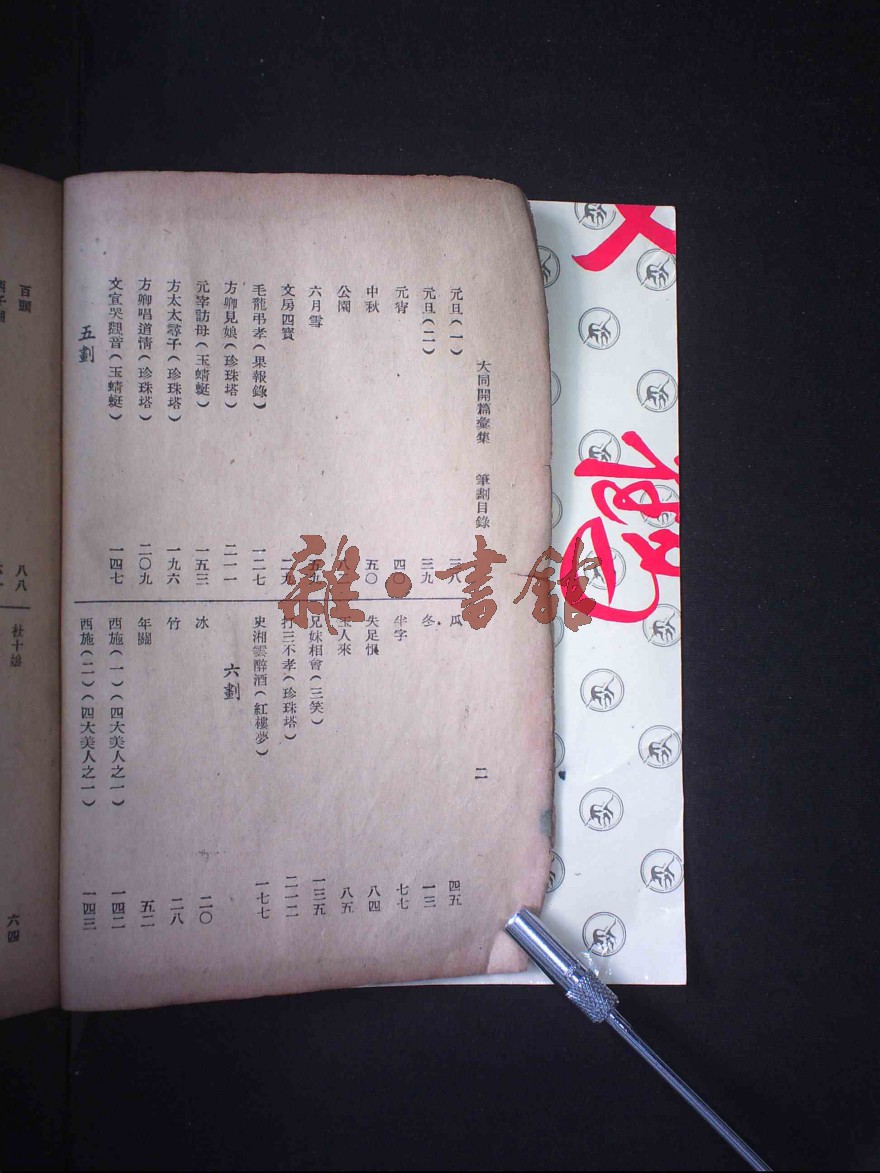 大同開篇彙集 筆劃目錄 二
元旦(一) 三八
元旦(二) 三九
元宵 四〇
中秋 五〇
公園
六月雪 五九
文房四寶 二九
毛龍弔孝(果報錄) 一二七
方卿見娘(珍珠塔) 二一一
元宰訪母(玉蜻蜓) 一五三
方太太尋子(珍珠塔) 一九六
方卿唱道情(珍珠塔) 二〇九
文宣哭觀音(玉蜻蜓) 一四七
五劃
瓜 四五
冬 一三
半字 七七
失足恨 八四
玉人來 八五
兄妹相會(三笑) 一三五
打三不孝(珍珠塔) 二一二
史湘雲醉酒(紅樓夢) 一七七
六劃
冰 二〇
竹 二八
年關 五二
西施(一)(四大美人之一) 一四二
西施(二)(四大美人之一) 一四三
百頭
八八
杜十娘 六四
雜·書館